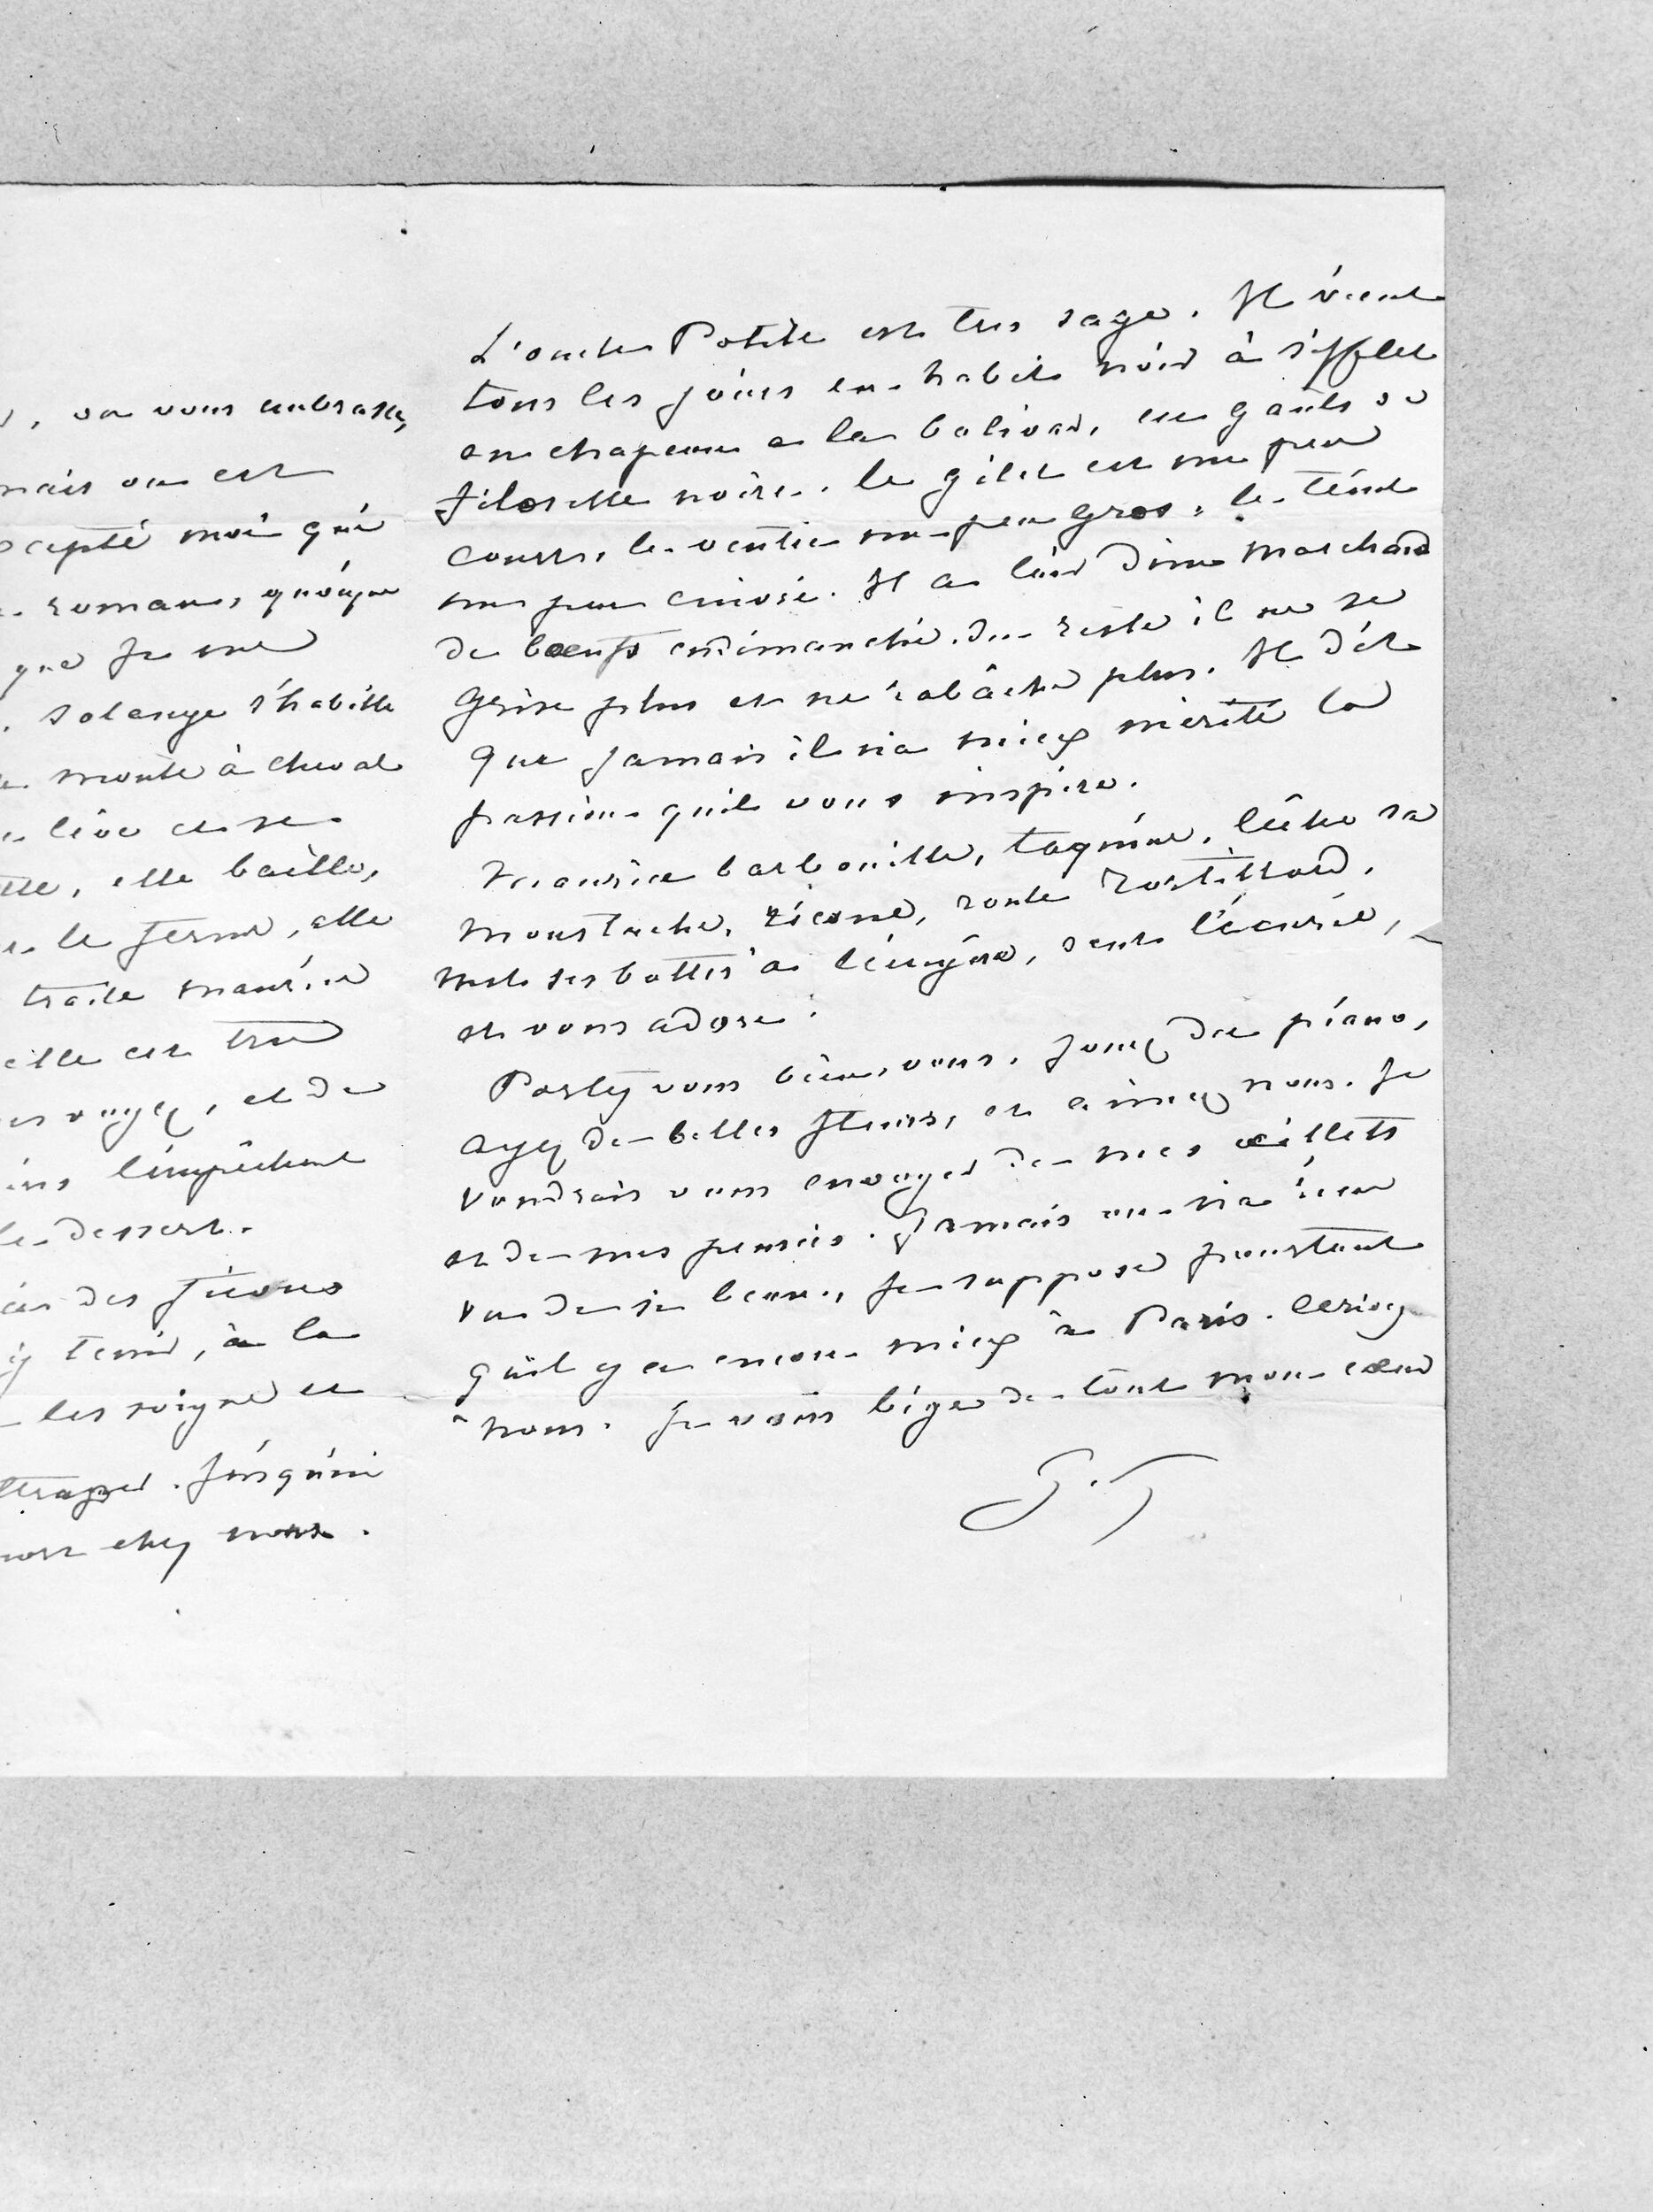 , on vous embrasse,
mais on est
cepté moi qui
roman, quoique
que je me
. Solange s'habille
monte à cheval
lève et se
elle baille,
le ferme, elle
traite Maurice
elle est
voyez, et de
l'empêchent
le dessert.
des
tenir, à la
les soigne et
. Jusqu'ici
chez nous.
L'oncle Potite est très sage. Il vient
tous les jours en habit noir à sifflet
en chapeau à la bolivar, en gants de
filoselle noire. le gilet est un peu
court, le ventre un peu gros, le teint
un peu cuivré. Il a l'air d'un marchand
de bœufs endimanché. du reste il ne se
grise plus et ne rabâche plus. Il dit
que jamais il n'a mieux mérité la
passion qu'il vous inspire.
Maurice barbouille, taquine, lèche sa
moustache, ricane, roule
met ses bottes à l'écuyère, sent l'écurie,
et vous adore.
Portez vous bien, vous. jouez du piano,
ayez de belles fleurs, et aimez nous. Je
voudrais vous envoyer de mes œillets
et de mes pensées. Jamais on n'a rien
vu de si beau, je suppose pourtant
qu'il y a encore mieux à Paris. Ecrivez
à nous. Je vous bige de tout mon cœur